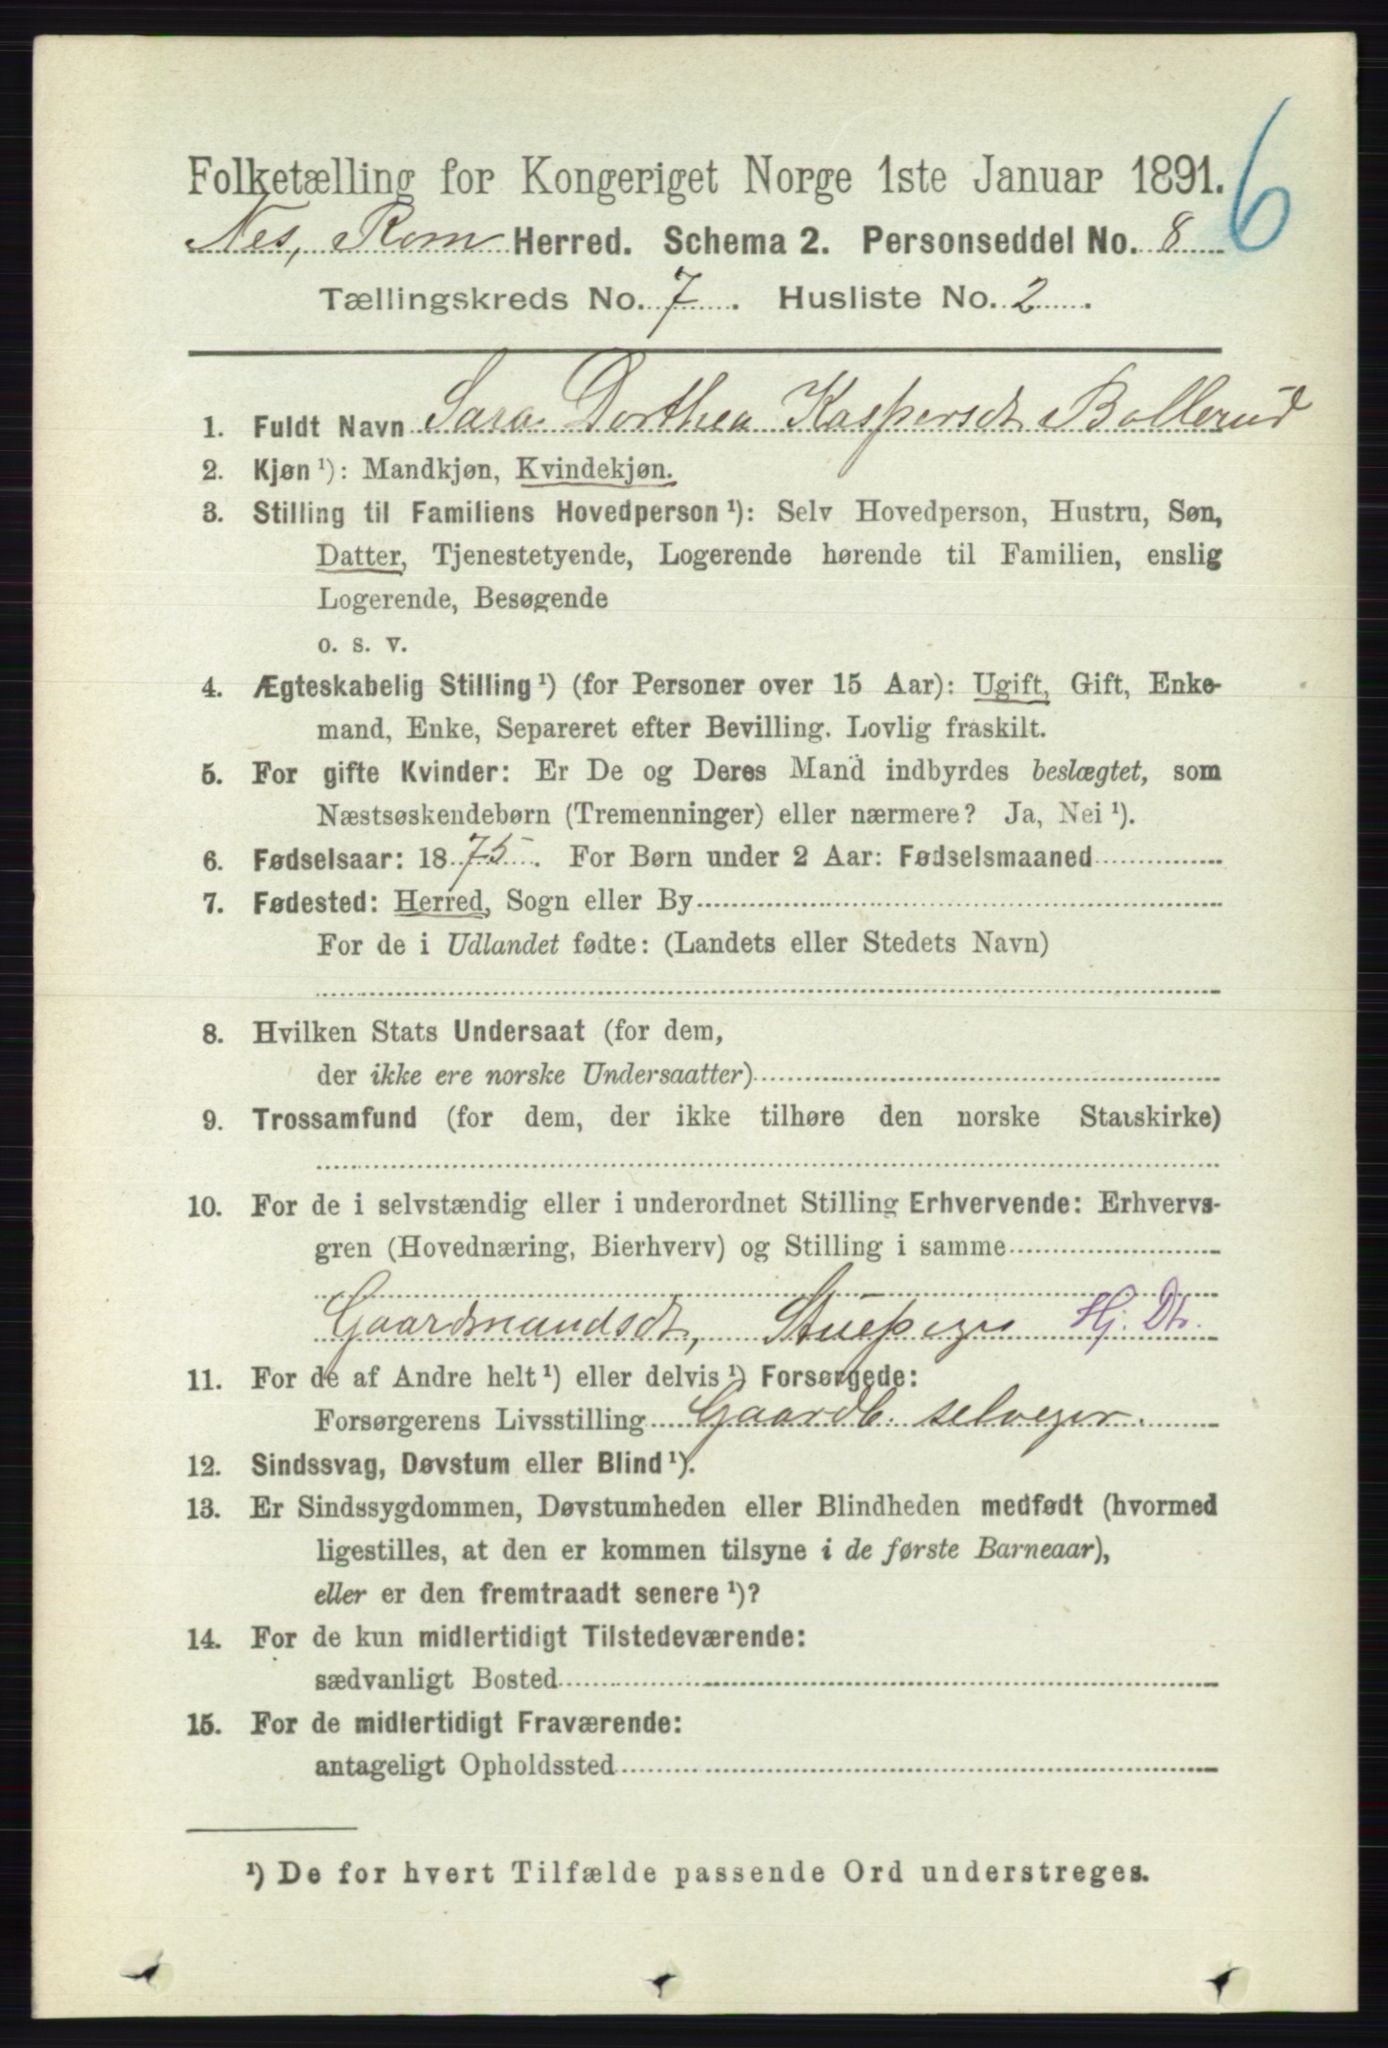 Folketælling for Kongeriget Norge 1ste Januar 1891.
6
Nes, Rom Herred. Schema 2. Personseddel No. 8
Tællingskreds No. 7. Husliste No. 2.
1. Fuldt Navn Sara Dorthea Kaspersdt Bollerud
2. Kjøn ¹): Mandkjøn, Kvindekjøn.
3. Stilling til Familiens Hovedperson ¹): Selv Hovedperson, Hustru, Søn,
Datter, Tjenestetyende, Logerende hørende til Familien, enslig
Logerende, Besøgende
o. s. v.
4. Ægteskabelig Stilling ¹) (for Personer over 15 Aar): Ugift, Gift, Enke-
mand, Enke, Separeret efter Bevilling. Lovlig fraskilt.
5. For gifte Kvinder: Er De og Deres Mand indbyrdes beslægtet, som
Næstsøskendebørn (Tremenninger) eller nærmere? Ja, Nei ¹).
6. Fødselsaar: 1875. For Børn under 2 Aar: Fødselsmaaned
7. Fødested: Herred, Sogn eller By
For de i Udlandet fødte: (Landets eller Stedets Navn)
8. Hvilken Stats Undersaat (for dem,
der ikke ere norske Undersaatter)
9. Trossamfund (for dem, der ikke tilhøre den norske Statskirke)
10. For de i selvstændig eller i underordnet Stilling Erhvervende: Erhvervs-
gren (Hovednæring, Bierhverv) og Stilling i samme
Gaardmandsdt, Stuepige Hj. Dtr.
11. For de af Andre helt ¹) eller delvis ¹) Forsørgede:
Forsørgerens Livsstilling Gaardb. selveier.
12. Sindssvag, Døvstum eller Blind ¹).
13. Er Sindssygdommen, Døvstumheden eller Blindheden medfødt (hvormed
ligestilles, at den er kommen tilsyne i de første Barneaar),
eller er den fremtraadt senere ¹)?
14. For de kun midlertidigt Tilstedeværende:
sædvanligt Bosted
15. For de midlertidigt Fraværende:
antageligt Opholdssted
¹) De for hvert Tilfælde passende Ord understreges.